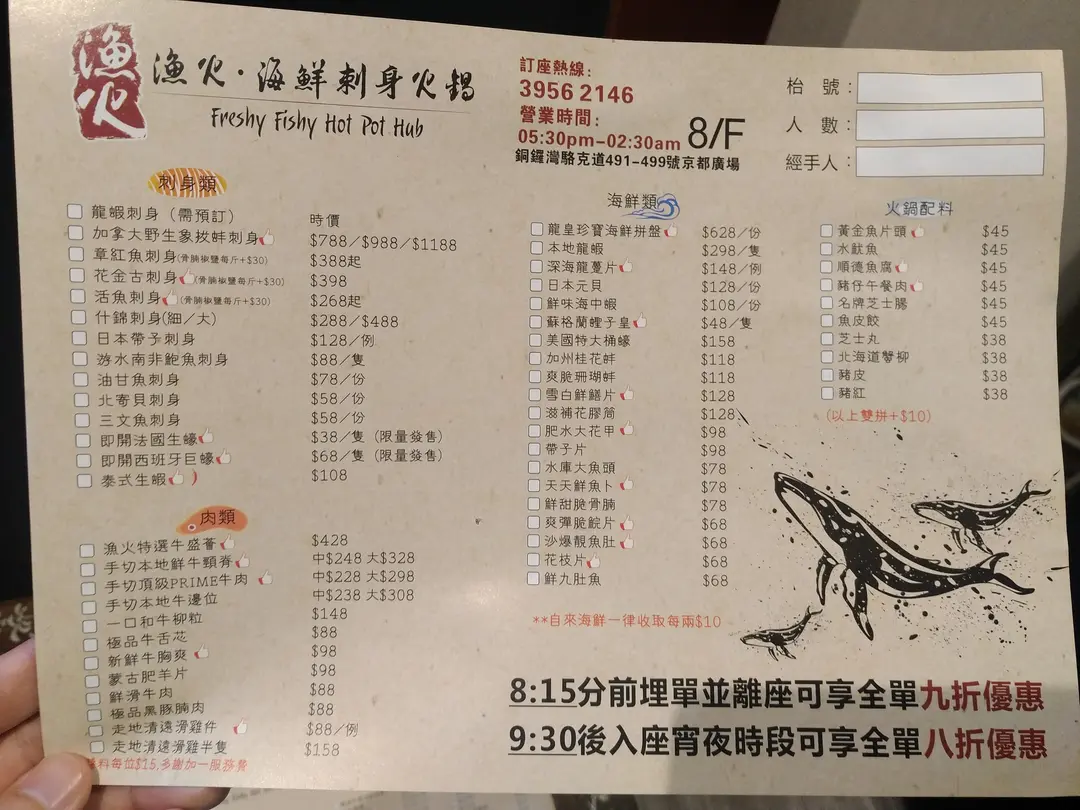 漁火
漁火·海鮮刺身火鍋
Freshy Fishy Hot Pot Hub
訂座熱線:
3956 2146
營業時間:
05:30pm-02:30am 8/F
銅鑼灣駱克道491-499號京都廣場
枱 號:
人 數:
經手人:
刺身類
龍蝦刺身(需預訂) 時價
加拿大野生象拔蚌刺身 $788/$988/$1188
章紅魚刺身(骨腩椒鹽每斤+$30) $388起
花金古刺身(骨腩椒鹽每斤+$30) $398
活魚刺身(骨腩椒鹽每斤+$30) $268起
什錦刺身(細/大) $288/$488
日本帶子刺身 $128/例
游水南非鮑魚刺身 $88/隻
油甘魚刺身 $78/份
北寄貝刺身 $58/份
三文魚刺身 $58/份
即開法國生蠔 $38/隻(限量發售)
即開西班牙巨蠔 $68/隻(限量發售)
泰式生蝦 ) $108
肉類
漁火特選牛盛薈 $428
手切本地鮮牛頸脊 中$248 大$328
手切頂級PRIME牛肉 中$228 大$298
手切本地牛邊位 中$238 大$308
一口和牛柳粒 $148
極品牛舌芯 $88
新鮮牛胸爽 $98
蒙古肥羊片 $98
鮮滑牛肉 $88
極品黑豚腩肉 $88
走地清遠滑雞件 $88/例
走地清遠滑雞半隻 $158
料每位$15,多謝加一服務費
海鮮類
龍皇珍寶海鮮拼盤 $628/份
本地龍蝦 $298/隻
深海龍躉片 $148/例
日本元貝 $128/份
鮮味海中蝦 $108/份
蘇格蘭蟶子皇 $48/隻
美國特大桶蠔 $158
加州桂花蚌 $118
爽脆珊瑚蚌 $118
雪白鮮鱔片 $128
滋補花膠筒 $128
肥水大花甲 $98
帶子片 $98
水庫大魚頭 $78
天天鮮魚卜 $78
鮮甜脆骨腩 $78
爽彈脆鯇片 $68
沙爆靚魚肚 $68
花枝片 $68
鮮九肚魚 $68
**自來海鮮一律收取每兩$10
火鍋配料
黃金魚片頭 $45
水魷魚 $45
順德魚腐 $45
豬仔午餐肉 $45
名牌芝士腸 $45
魚皮餃 $45
芝士丸 $38
北海道蟹柳 $38
豬皮 $38
豬紅 $38
(以上雙拼+$10)
8:15分前埋單並離座可享全單九折優惠
9:30後入座宵夜時段可享全單八折優惠